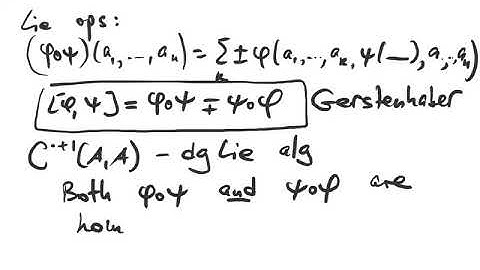 Lie ops:
(φ∘ψ)(a₁,…,aₙ) = Σₖ ± φ(a₁,…,aₖ, ψ(—), a,…,aₙ)
[φ,ψ] = φ∘ψ ∓ ψ∘φ Gerstenhaber
C^{·+1}(A,A) – dg Lie alg
Both φ∘ψ and ψ∘φ are
hom